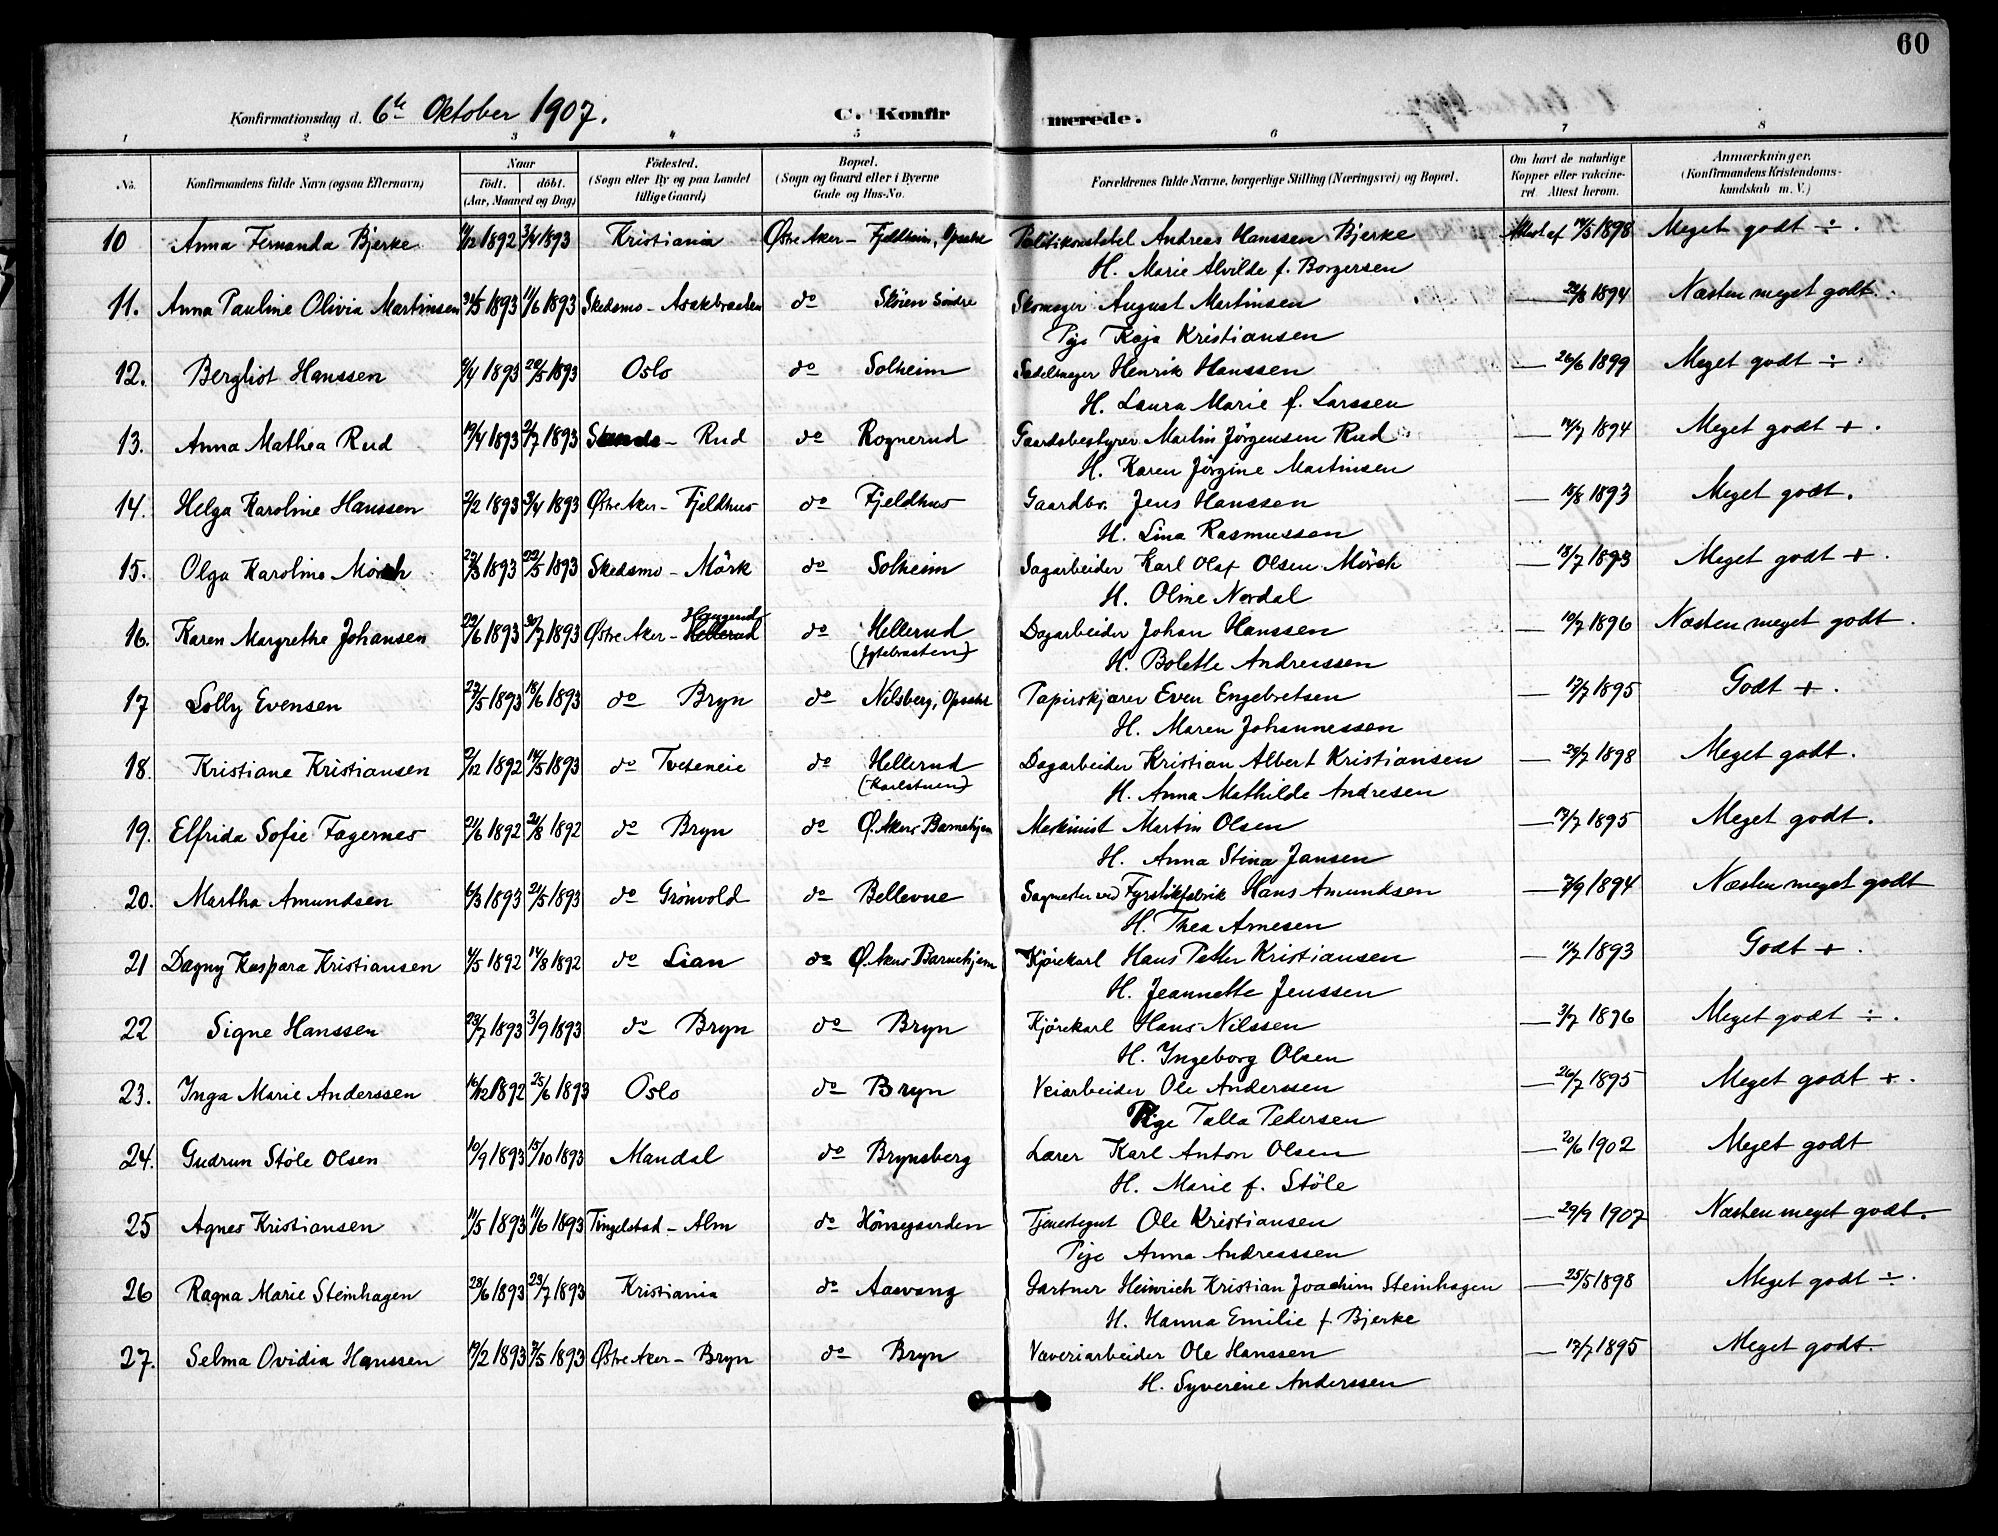 60
Konfirmationsdag d. 6te Oktober 1907. C. Konfirmerede.
1 2 3 4 5 6 7 8
No. Konfirmandens fulde Navn (ogsaa Efternavn) Naar født. døbt. (Aar, Maaned og Dag) Fødested. (Sogn eller By og paa Landet tillige Gaard) Bopæl. (Sogn og Gaard eller i Byerne Gade og Hus-No. Forældrenes fulde Navne, borgerlige Stilling (Næringsvei) og Bopæl. Om havt de naturlige Kopper eller vakcineret. Attest herom. Anmærkninger. (Konfirmandens Kristendomskundskab m. V.)
10 Anna Fernanda Bjerke /12 1892 3/4 1893 Kristiania Østre Aker - Fjeldheim, Opsahl Politikonstabel Andreas Hanssen Bjerke Attest af /5 1898 Meget godt ÷.
H. Marie Alvilde f. Borgersen
11. Anna Pauline Olivia Martinsen 31/5 1893 11/6 1893 Skedsmo - Asakbraaten do Skøien Søndre Skomager August Martinsen — 22/8 1894 Næsten meget godt
Pige Kaja Kristiansen
12. Bergliot Hanssen /4 1893 28/5 1893 Oslo do Solheim Sadelmager Henrik Hanssen — 26/6 1899 Meget godt ÷.
H. Laura Marie f. Larssen
13. Anna Mathea Rud 19/4 1893 2/7 1893 - Rud do Rognerud Gaardsbestyrer Martin Jørgensen Rud — /7 1894 Meget godt +.
H. Karen Jørgine Martinsen
14. Helga Karoline Hanssen 2/2 1893 3/4 1893 Østre Aker - Fjeldhus do Fjeldhus Gaardbr. Jens Hanssen — /8 1893 Meget godt.
H. Lina Rasmussen
15. Olga Karoline Mörch 27/3 1893 22/5 1893 Skedsmo - Mörk do Solheim Sagarbeider Karl Olaf Olsen Mörch — 18/7 1893 Meget godt +.
H. Oline Nordal
Haugerud
16. Karen Margrethe Johansen 22/6 1893 30/7 1893 Østre Aker - Hellerud do Hellerud Dagarbeider Johan Hanssen — 10/7 1896 Næsten meget godt.
(Jytebraaten) H. Bolette Andreassen
17 Lolly Evensen 27/5 1893 18/6 1893 do Bryn do Nilsberg, Opsahl Papirskjærer Even Engebretsen — 12/7 1895 Godt +.
H. Maren Johannessen
18. Kristiane Kristiansen 2/12 1892 14/5 1893 do Tveteneie do Hellerud Dagarbeider Kristian Albert Kristiansen — 29/7 1898 Meget godt.
(Karlstuen) H. Anna Mathilde Andresen
19. Elfrida Sofie Fagernes 21/6 1892 21/8 1892 do Bryn do Ø. Akers Barnehjem Maskinist Martin Olsen — 17/7 1895 Meget godt.
H. Anna Stina Jansen
20. Martha Amundsen 6/3 1893 21/5 1893 do Grönvold do Bellevue Sagmester ved Fyrstikfabrik Hans Amundsen — /9 1894 Næsten meget godt
H. Thea Arnesen
21 Dagny Kaspara Kristiansen /5 1892 14/8 1892 do Lian do Ø. Akers Barnehjem Kjörekarl Hans Petter Kristiansen — 11/7 1893 Godt +.
H. Jeannette Jenssen
22 Signe Hanssen 23/7 1893 3/9 1893 do Bryn do Bryn Kjörekarl Hans Nilssen — 3/7 1896 Meget godt ÷.
H. Ingeborg Olsen
23. Inga Marie Anderssen 16/12 1892 25/6 1893 Oslo do Bryn Veiarbeider Ole Anderssen — 26/7 1895 Meget godt +.
Pige Talla Pedersen
24. Gudrun Støle Olsen 10/9 1893 15/10 1893 Mandal do Brynsberg Lærer Karl Anton Olsen — 20/6 1902 Meget godt
H. Marie f. Støle
25 Agnes Kristiansen 11/5 1893 11/6 1893 Tingelstad - Alm do Hønsegaarden Tjenestegut Ole Kristiansen — 29/9 1907 Næsten meget godt.
Pige Anna Andreassen
26 Ragna Marie Steinhagen 28/6 1893 23/7 1893 Kristiania do Aasvang Gartner Heinrich Kristian Joachim Steinhagen — 25/5 1898 Meget godt ÷.
H. Hanna Emilie f Bjerke
27. Selma Ovidia Hanssen 19/2 1893 7/5 1893 Østre Aker - Bryn do Bryn Væveriarbeider Ole Hanssen — 17/7 1895 Meget godt.
H. Syverine Anderssen